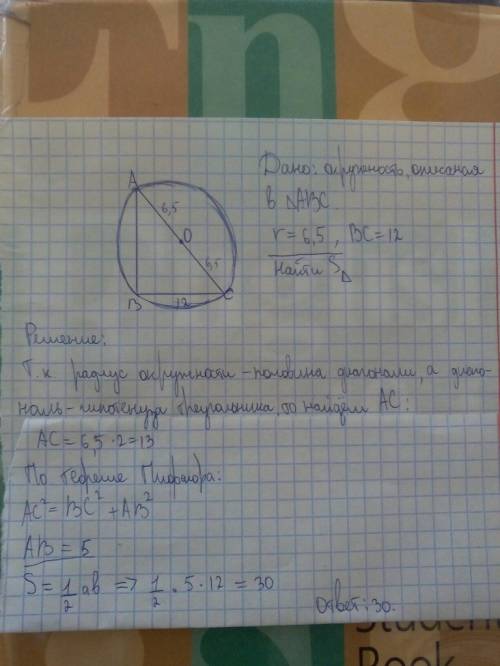 En g
A
6,5
O
6,5
B
12
C
Дано: окружность, описаная
в △ABC.
r = 6,5 , BC = 12
Найти S△
Решение:
Т.к радиус окружности - половина диагонали, а диаго-
наль - гипотенуза треугольника, то найдём AC:
AC = 6,5 · 2 = 13
По теореме Пифагора:
AC² = BC² + AB²
AB = 5
S = 1/2 ab => 1/2 · 5 · 12 = 30
Ответ: 30.
Student
Book